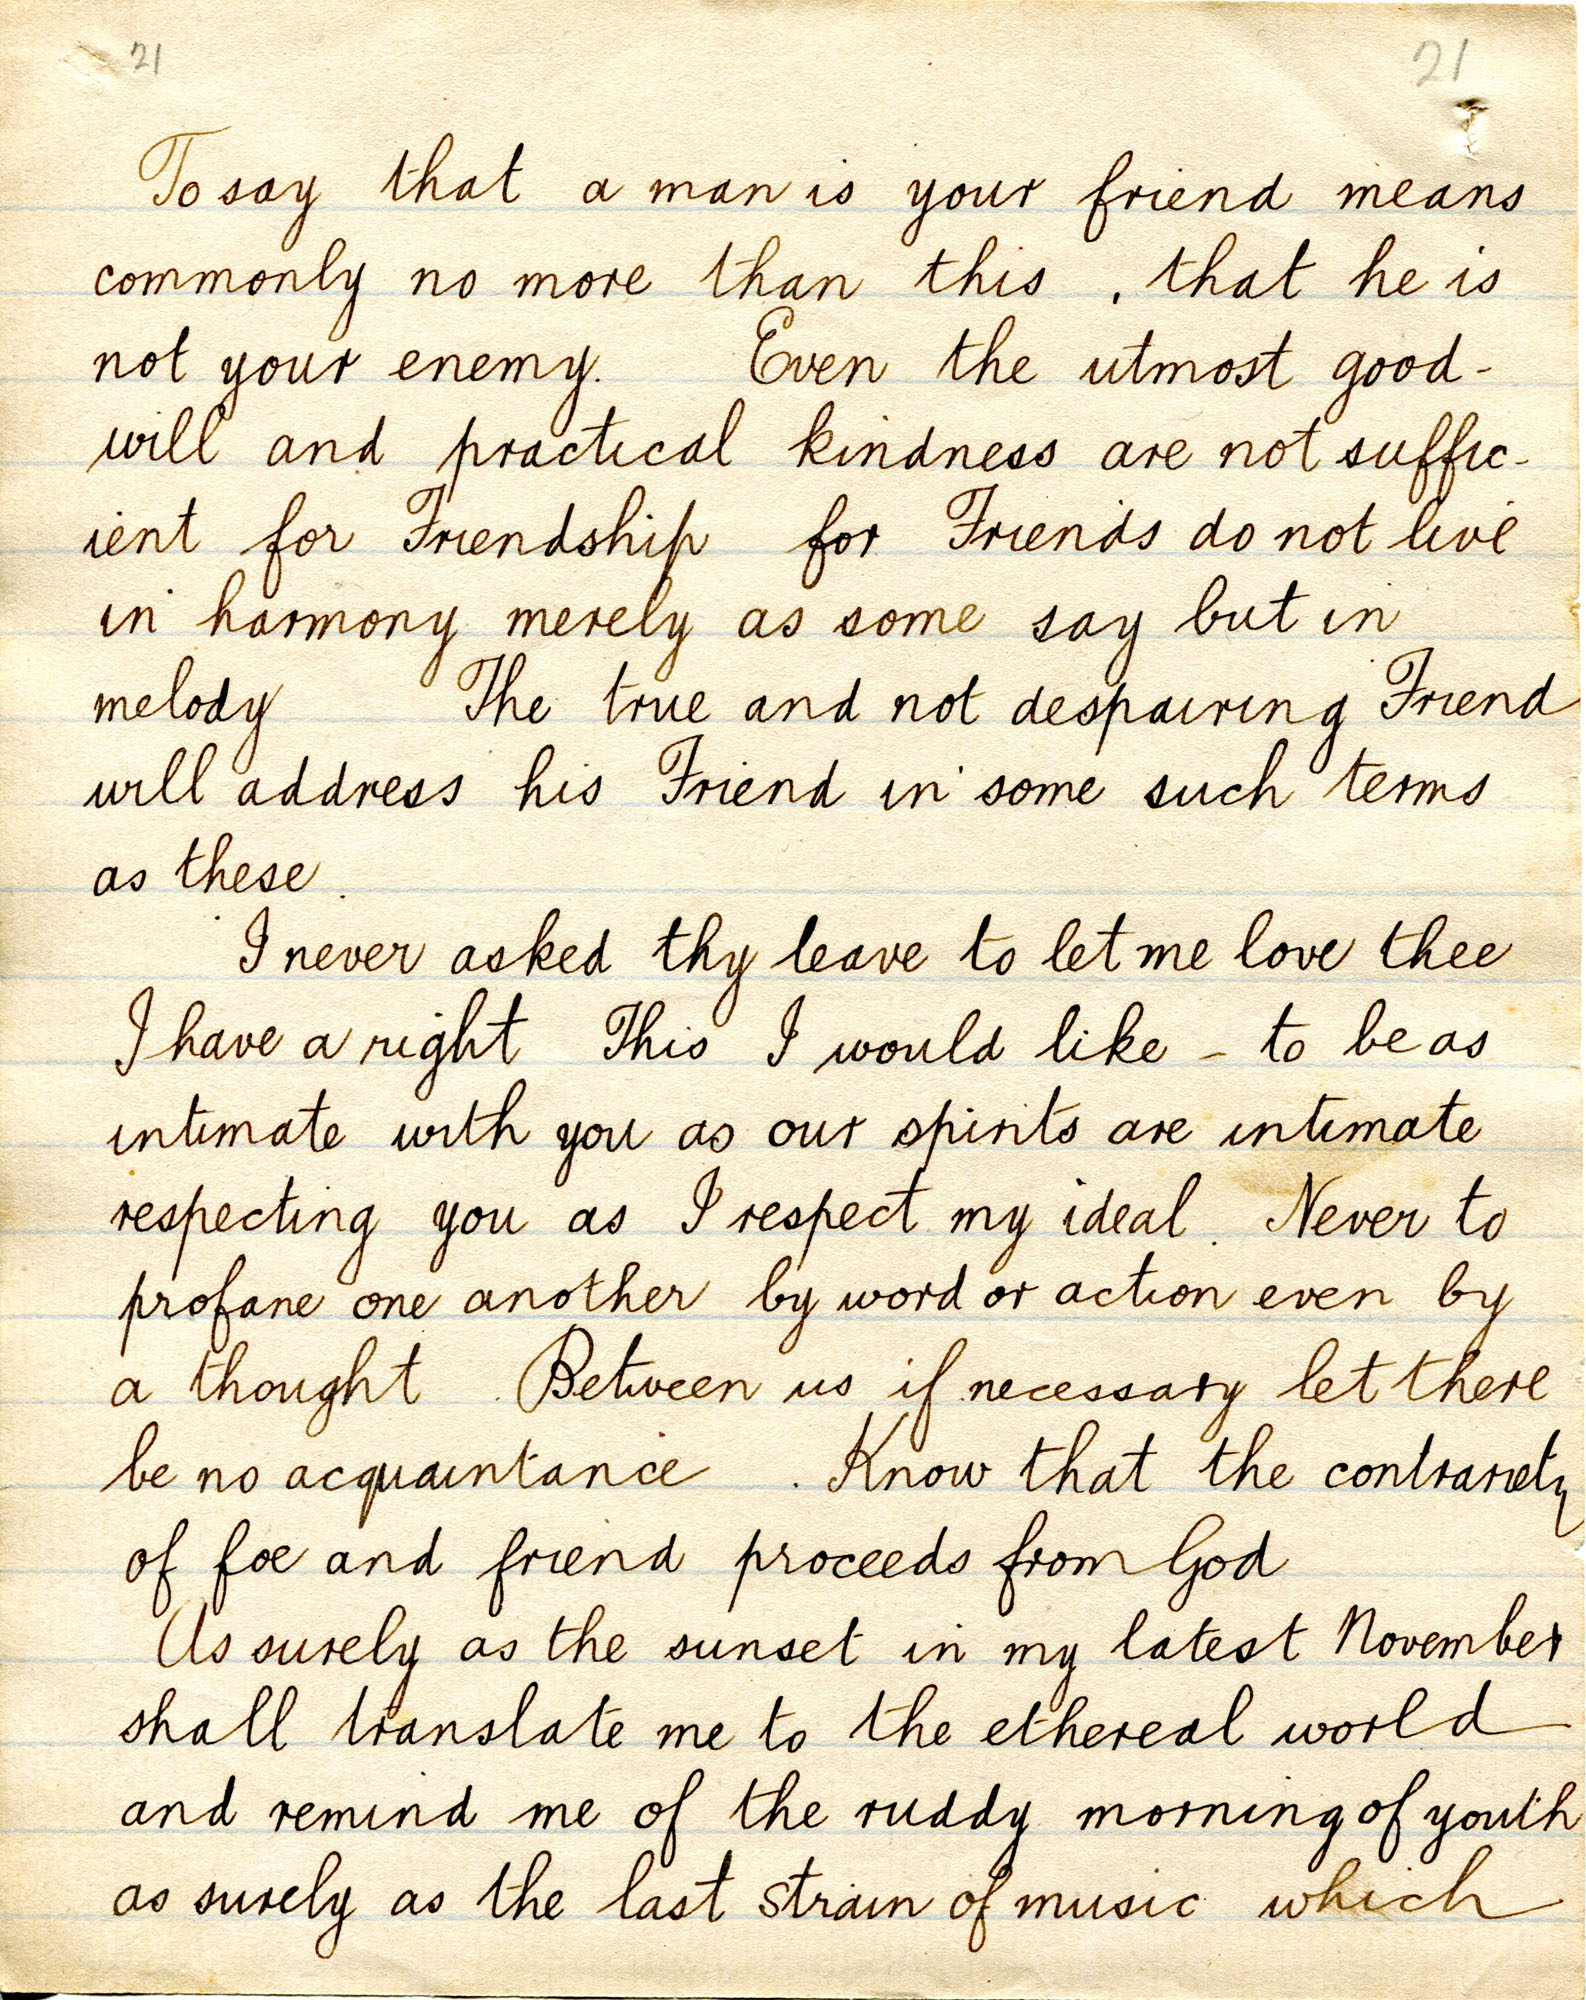 21 21
To say that a man is your friend means
commonly no more than this , that he is
not your enemy. Even the utmost good-
will and practical kindness are not suffic-
ient for Friendship for Friends do not live
in harmony merely as some say but in
melody The true and not despairing Friend
will address his Friend in some such terms
as these.
I never asked thy leave to let me love thee
I have a right This I would like - to be as
intimate with you as our spirits are intimate
respecting you as I respect my ideal. Never to
profane one another by word or action even by
a thought. Between us if necessary let there
be no acquaintance . Know that the contrariety
of foe and friend proceeds from God
As surely as the sunset in my latest November
shall translate me to the ethereal world
and remind me of the ruddy morning of youth
as surely as the last strain of music which